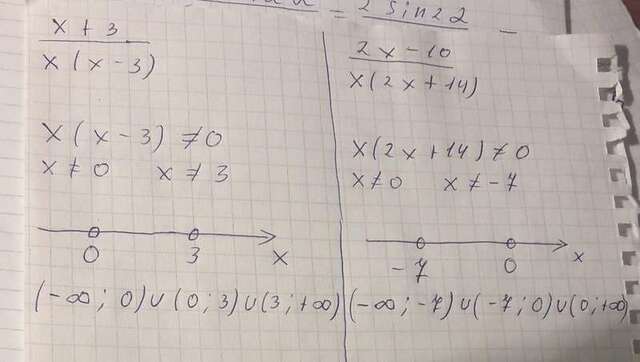 = 2 sin 2α
x + 3
x (x - 3)
x (x - 3) ≠ 0
x ≠ 0 x ≠ 3
0 3 x
(-∞; 0) ∪ (0; 3) ∪ (3; +∞)
2x - 10
x (2x + 14)
x (2x + 14) ≠ 0
x ≠ 0 x ≠ -7
-7 0 x
(-∞; -7) ∪ (-7; 0) ∪ (0; +∞)